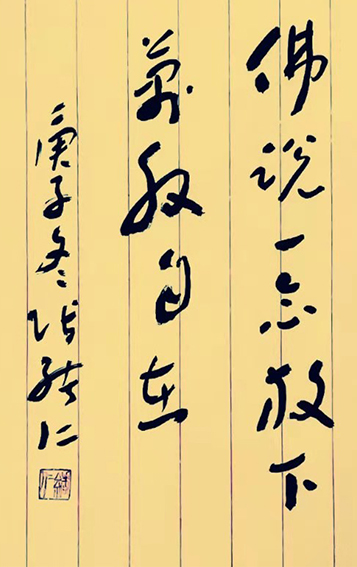 佛说一念放下
萬般自在
庚子冬仁